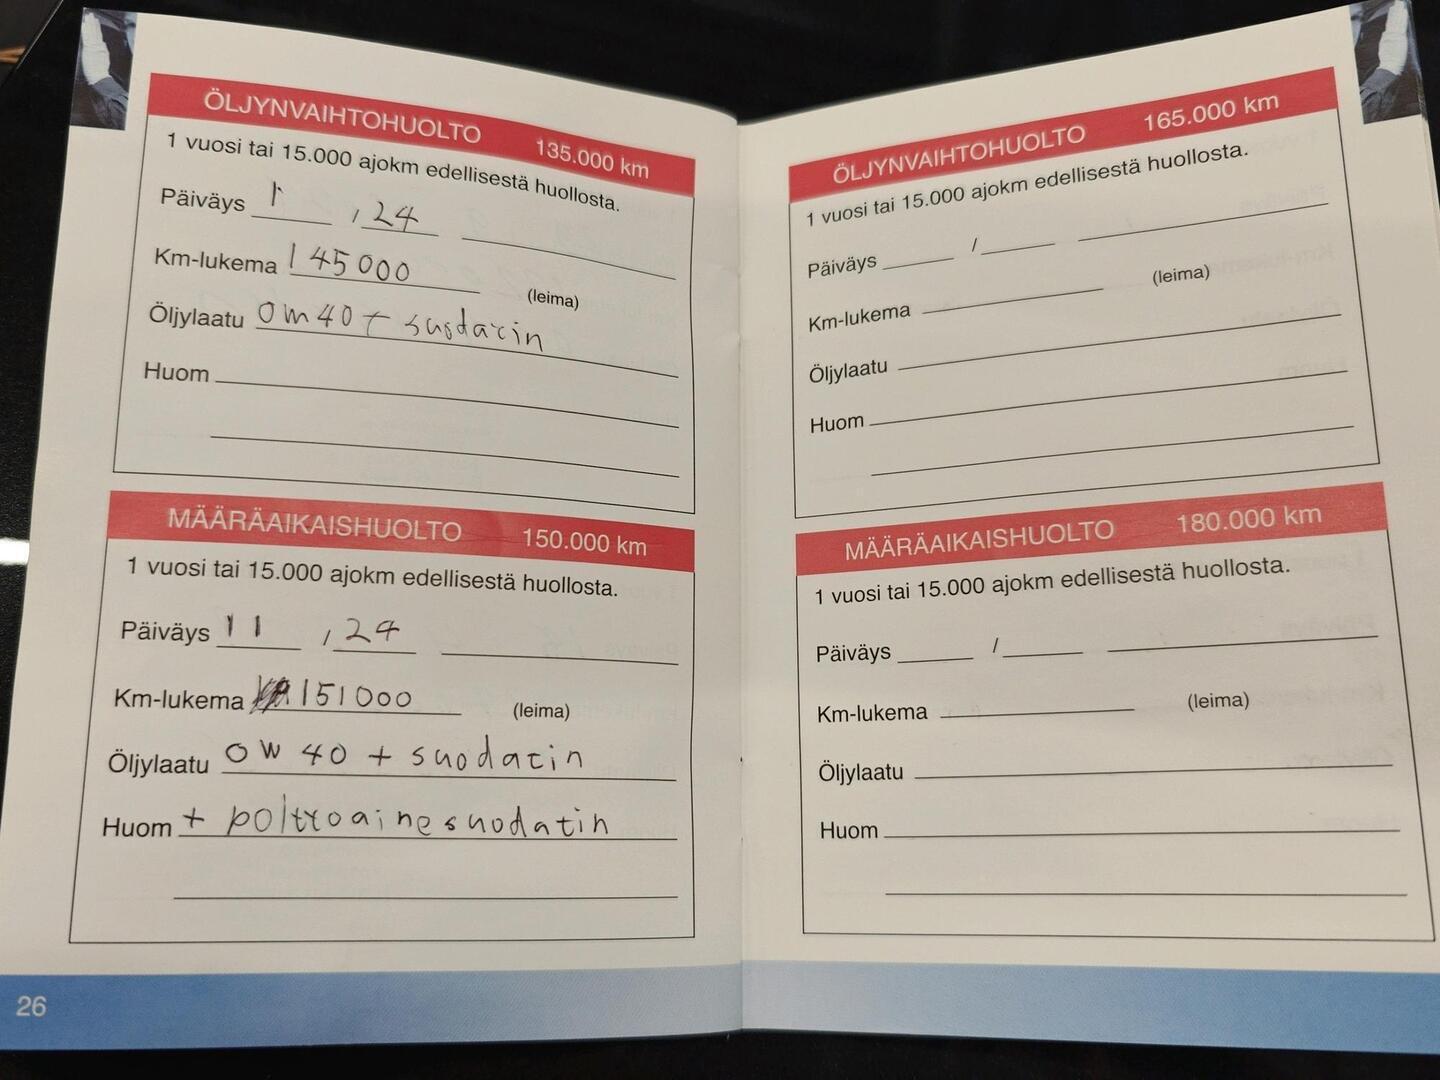 ÖLJYNVAIHTOHUOLTO 135.000 km
1 vuosi tai 15.000 ajokm edellisestä huollosta.
Päiväys 1 / 24
Km-lukema 145000
(leima)
Öljylaatu 0W40 + suodatin
Huom
MÄÄRÄAIKAISHUOLTO 150.000 km
1 vuosi tai 15.000 ajokm edellisestä huollosta.
Päiväys 11 / 24
Km-lukema 151000
(leima)
Öljylaatu 0W 40 + suodatin
Huom + polttoainesuodatin
26
ÖLJYNVAIHTOHUOLTO 165.000 km
1 vuosi tai 15.000 ajokm edellisestä huollosta.
Päiväys /
Km-lukema (leima)
Öljylaatu
Huom
MÄÄRÄAIKAISHUOLTO 180.000 km
1 vuosi tai 15.000 ajokm edellisestä huollosta.
Päiväys /
Km-lukema (leima)
Öljylaatu
Huom